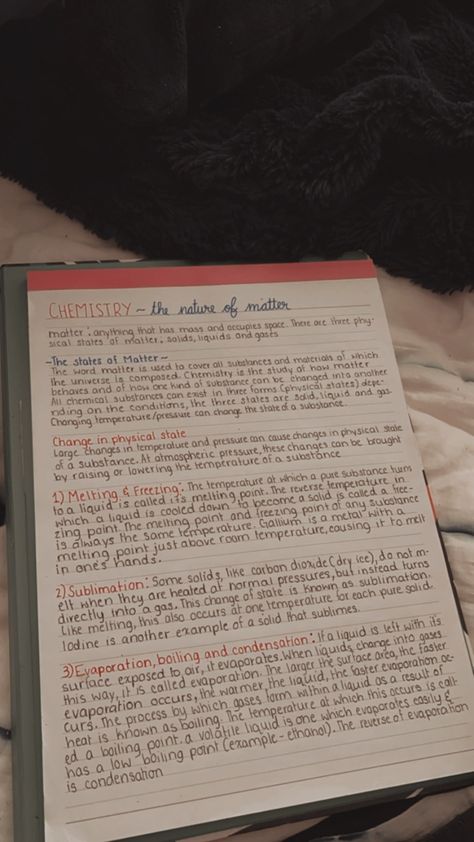 CHEMISTRY ~ the nature of matter
matter: anything that has mass and occupies space. There are three phy-
sical states of matter: solids, liquids and gases
~The states of Matter~
The word matter is used to cover all substances and materials of which
the universe is composed. Chemistry is the study of how matter
behaves and of how one kind of substance can be changed into another
All chemical substances can exist in three forms (physical states) depe-
nding on the conditions, the three states are solid, liquid and gas.
Changing temperature/pressure can change the state of a substance.
Change in physical state
Large changes in temperature and pressure can cause changes in physical state
of a substance. At atmospheric pressure, these changes can be brought
by raising or lowering the temperature of a substance
1) Melting & Freezing: The temperature at which a pure substance turns
to a liquid is called its melting point. The reverse temperature, in
which a liquid is cooled down to become a solid is called a free-
zing point. The melting point and freezing point of any substance
is always the same temperature. Gallium is a metal with a
melting point just above room temperature, causing it to melt
in one's hands.
2) Sublimation: Some solids, like carbon dioxide (dry ice), do not m-
elt when they are heated at normal pressures, but instead turns
directly into a gas. This change of state is known as sublimation.
Like melting, this also occurs at one temperature for each pure solid.
Iodine is another example of a solid that sublimes.
3) Evaporation, boiling and condensation: If a liquid is left with its
surface exposed to air, it evaporates. When liquids change into gases
this way, it is called evaporation. The larger the surface area, the faster
evaporation occurs, the warmer the liquid, the faster evaporation oc-
curs. The process by which gases form within a liquid as a result of
heat is known as boiling. The temperature at which this occurs is call-
ed a boiling point. a volatile liquid is one which evaporates easily &
has a low boiling point (example-ethanol). The reverse of evaporation
is condensation